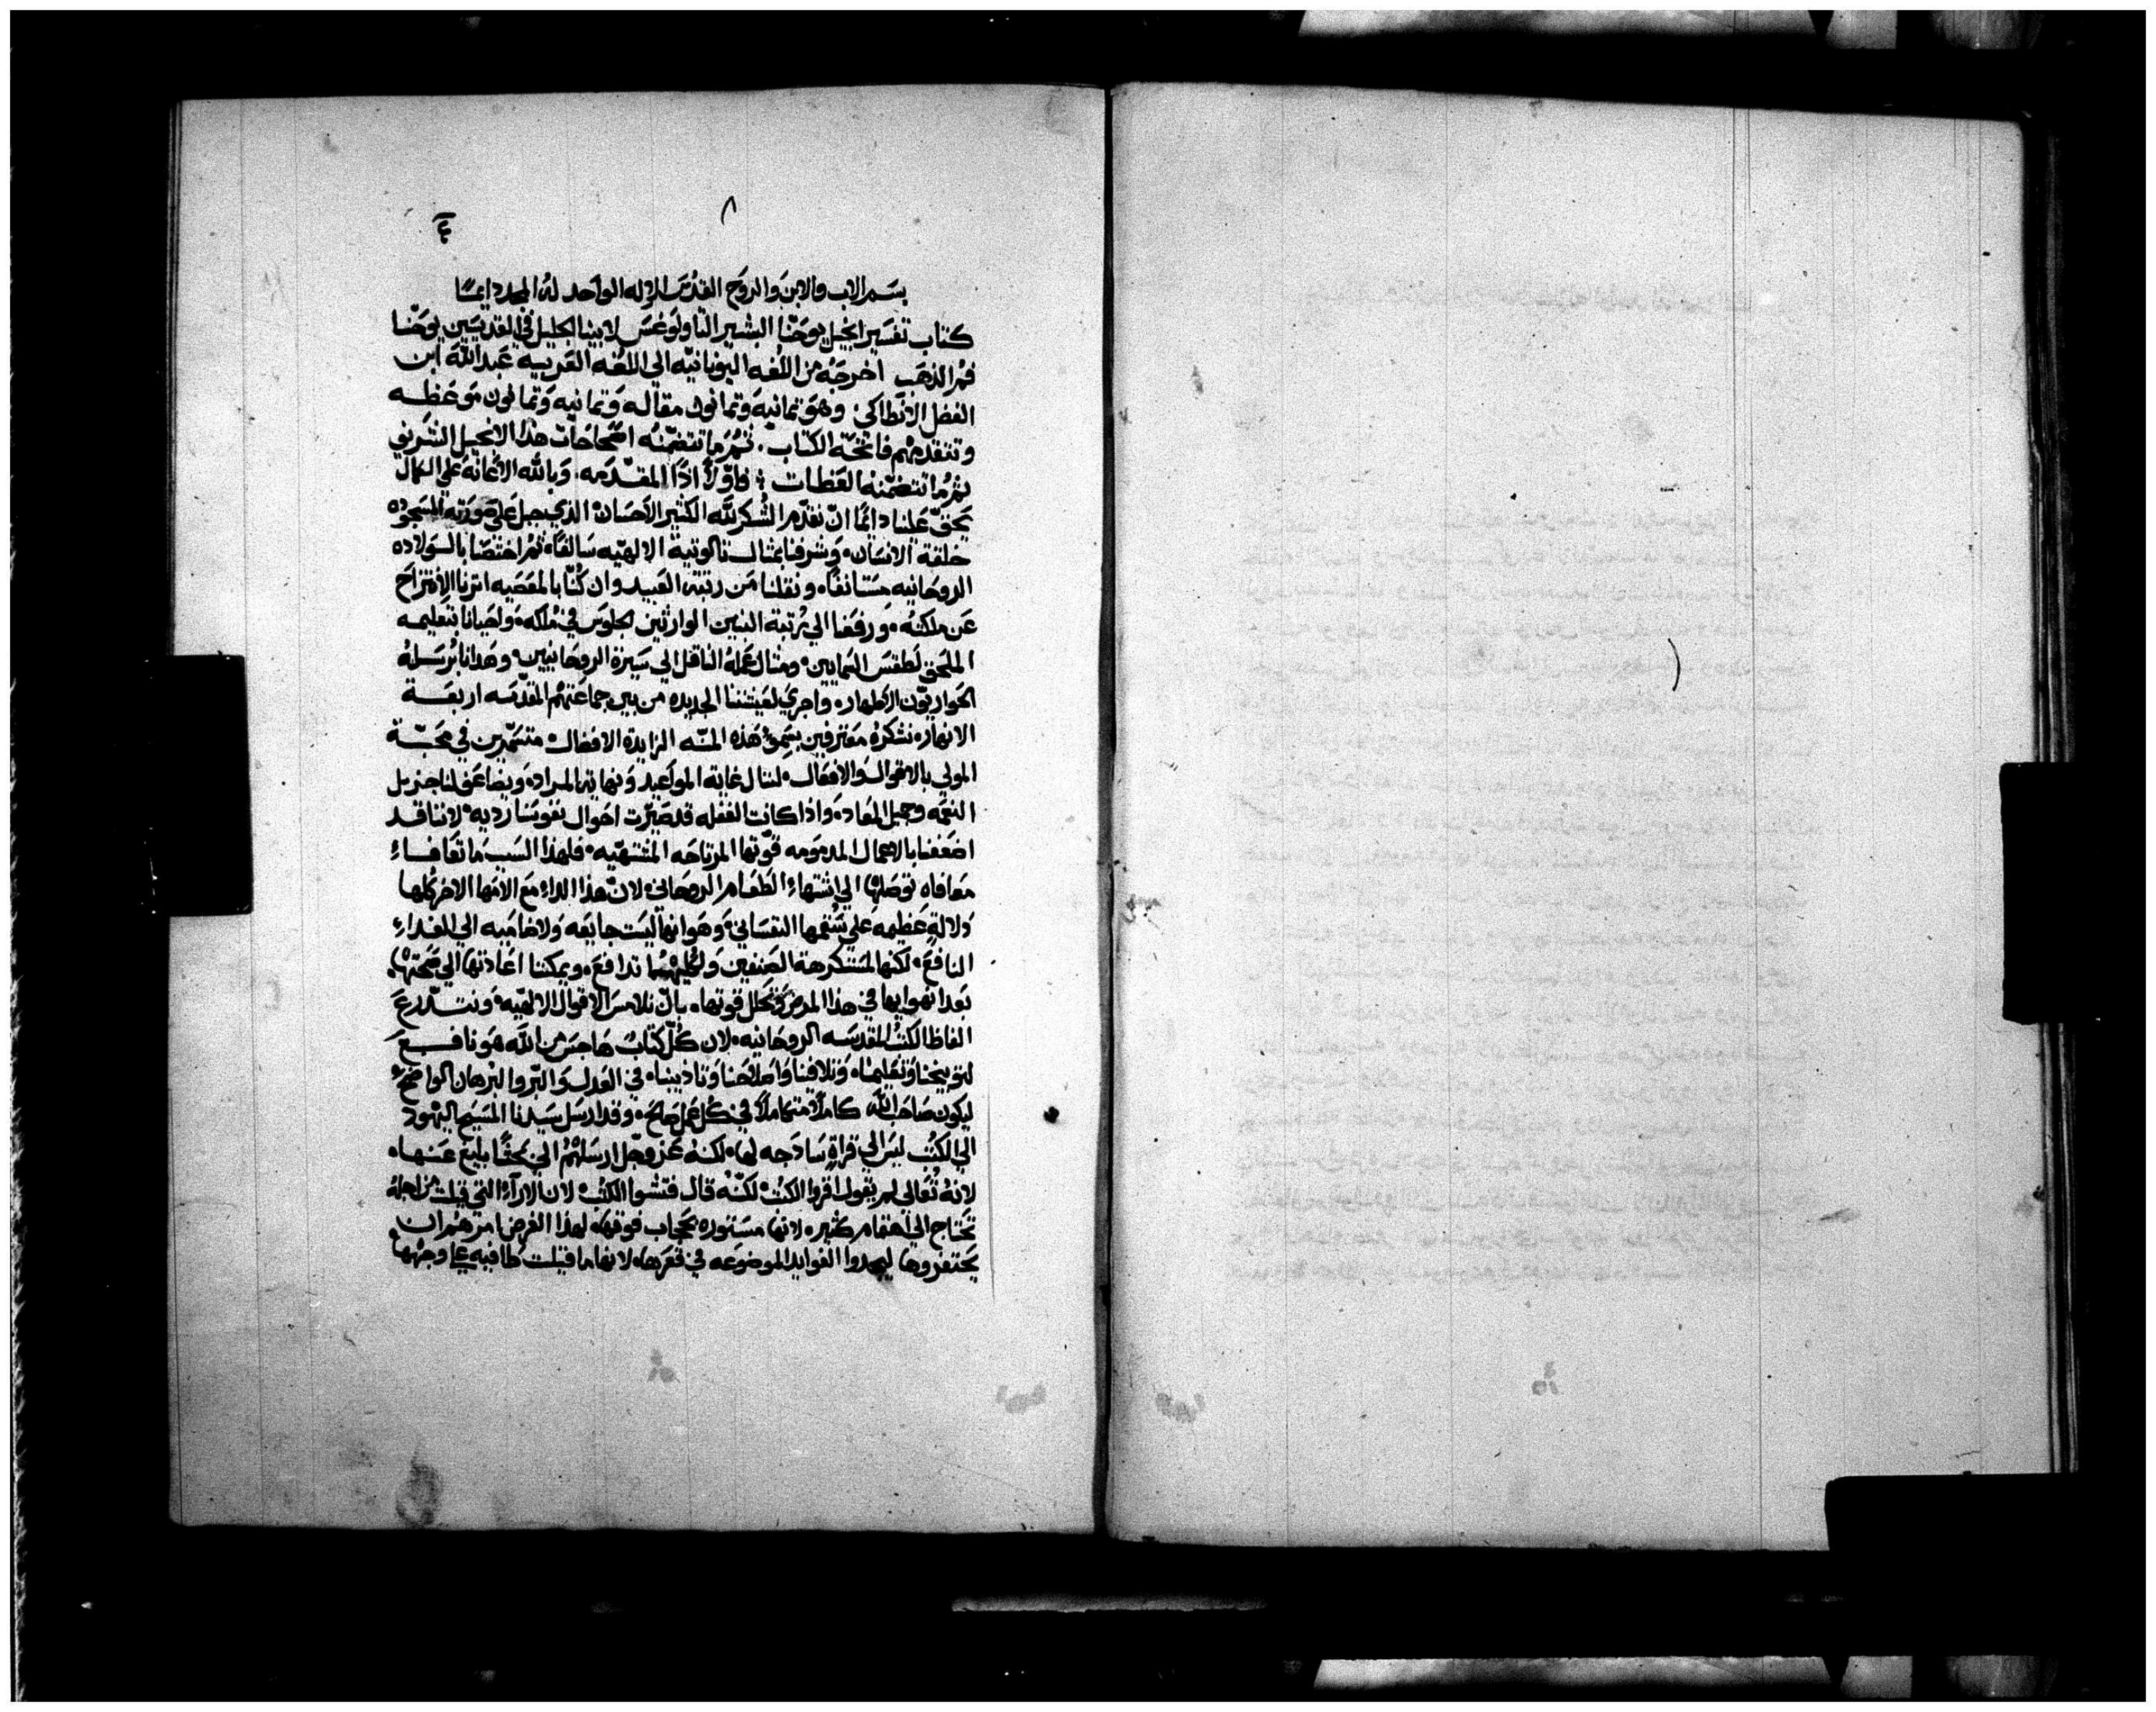 ٨
بسم الاب والابن والروح القدس الاله الواحد له المجد دايمًا
كتاب تفسير انجيل يوحنا البشير التاولوغس لابينا الجليل في القديسين يوحنا
فم الذهب اخرجه من اللغه اليونانيه الي اللغه العربيه عبد الله ابن
الفضل الانطاكي وهو تمانيه وتمانون مقاله وتمانيه وتمانون موعظه
وتتقدمهم فاتحة الكتاب. ثم ما تتضمنه اصحاحات هذا الانجيل الشريف
ثم ما تتضمنه العظات فاولًا اذا المقدمه. وبالله الاعانه علي الكمال
يحق علينا دايمًا ان نقدم الشكر لله الكثير الاحسان الذي جبل علي صورته المسجوده
خلقة الانسان. وشرفنا بمثال تالوتية الالهيه سالفًا. ثم اختصنا بالولاده
الروحانيه مستانفًا. ونقلنا من رتبة العبيد وان كنا بالمعصيه اثرنا الانتزاح
عن ملكته. ورفعنا الي مرتبة البنين الوارثين الجلوس في ملكه. واحيانا بتعليمه
الملحق لطقس السمايين. ومثال عمله الناقل الي سيرة الروحانيين. وهدانا برسله
الحواريون الاطهار. واجري لعيشتنا الجديده من بين جماعتهم المقدسه اربعة
الانهار. نشكره معترفين بسمو هذه المنه الزايدة الافضال متشمرين في محبة
المولي بالاقوال والافعال. لننال غاية المواعيد ونهاية المراد. ويضاعف لنا جزيل
النعمه وجميل المعاد. واذا كانت الغفله قد صيرت احوال نفوسنا رديه. لاننا قد
اضعفنا بالاعمال المدمومه قوتها المرتاحه المشتهيه. فلهذا السبب ما تعافاء
معافاه توصلها الي اشتهاء الطعام الروحاني. لان هذا الداء مع الامها الاخر كلها
دلالة عظيمه علي سقمها النفساني. وهو انها ليست جايعه ولا ظاميه الي الغداء
النافع. لكنها مستكرهة الصنفين ولكليهما تدافع. ويمكننا اعادتها الي صحتها.
بعد انهوايها في هذا المرض وتحلل قوتها. بان نلامس الاقوال الالهيه. ونتدرع
الفاظ الكتب المقدسه الروحانيه. لان كل كتاب هاجس من الله هو نافع
لتوبيخنا وتعليمنا. وتلافينا واصلاحنا وتاديبنا. في العدل والبر والبرهان الواضح
ليكون صاحب الله كاملًا متكاملًا في كل عمل صالح. وقد ارسل سيدنا المسيح اليهود
الي الكتب ليس الي قراة ساذجه لها. لكنه عز وجل ارسلهم الي بحثًا بليغ عنها.
لانه تعالي لم يقول اقروا الكتب. لكنه قال فتشوا الكتب. لان الاراء التي قيلت من اجله
تحتاج الي اهتمام كثير. لانها مستوره بحجاب فوقها. لهذا الغرض امرهم ان
يحتفروها ليجدوا الفوايد الموضوعه في قعرها. لانها ما قيلت طافيه علي وجهها